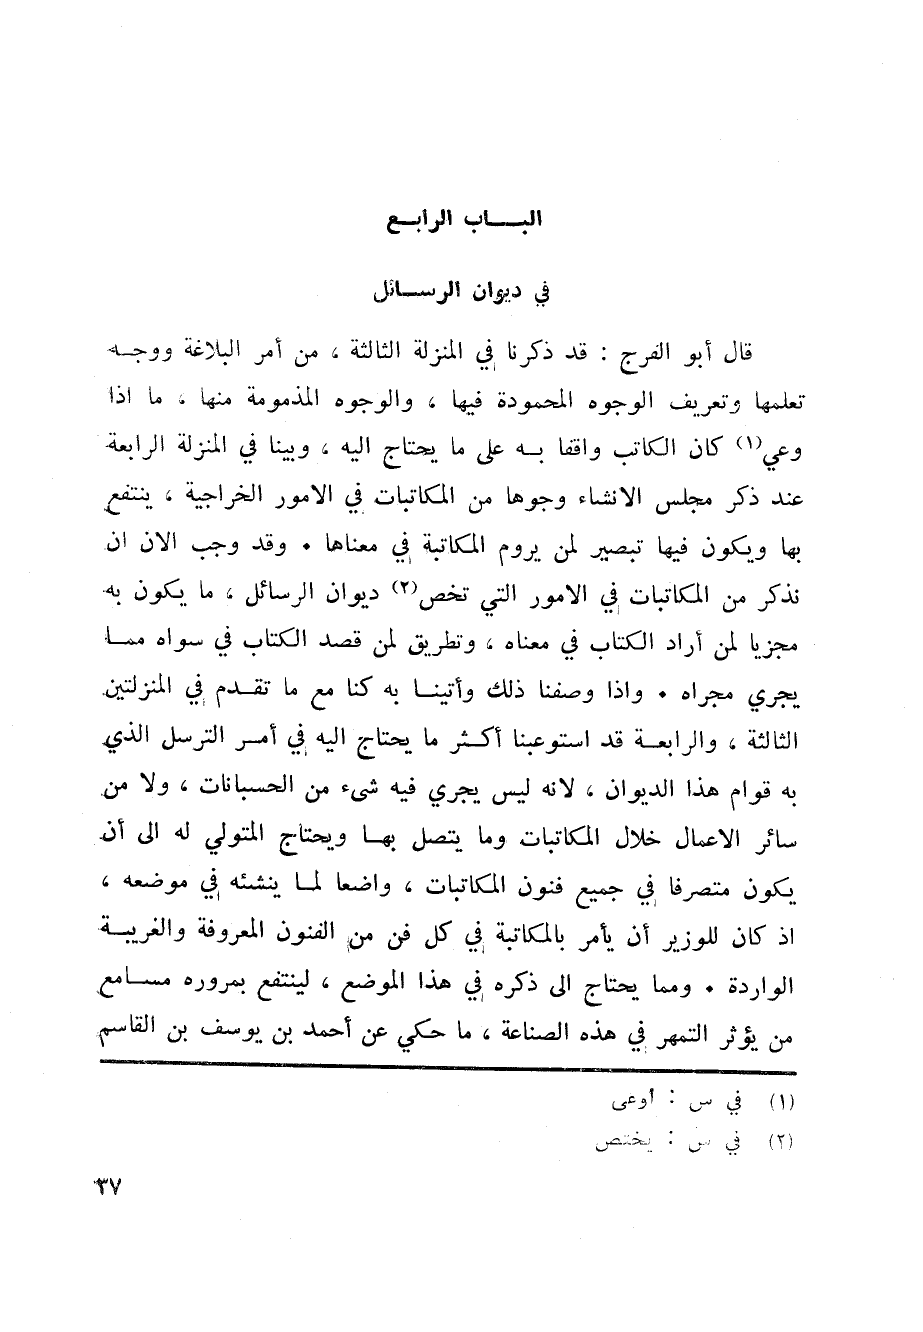 البـــاب الرابـع
في ديوان الرســائل
قال أبو الفرج : قد ذكرنا في المنزلة الثالثة ، من أمر البلاغة ووجــه
تعلمها وتعريف الوجوه المحمودة فيها ، والوجوه المذمومة منها ، ما اذا
وعي(١) كان الكاتب واقفا بــه على ما يحتاج اليه ، وبينا في المنزلة الرابعة
عند ذكر مجلس الانشاء وجوها من المكاتبات في الامور الخراجية ، ينتفع
بها ويكون فيها تبصير لمن يروم المكاتبة في معناها . وقد وجب الان ان
نذكر من المكاتبات في الامور التي تخص(٢) ديوان الرسائل ، ما يكون به
مجزيا لمن أراد الكتاب في معناه ، وتطريق لمن قصد الكتاب في سواه ممــا
يجري مجراه . واذا وصفنا ذلك وأتينــا به كنا مع ما تقدم في المنزلتين
الثالثة ، والرابعــة قد استوعبنا أكــثر ما يحتاج اليه في أمــر الترسل الذي
به قوام هذا الديوان ، لانه ليس يجري فيه شىء من الحسبانات ، ولا من
سائر الاعمال خلال المكاتبات وما يتصل بهــا ويحتاج المتولي له الى أن
يكون متصرفا في جميع فنون المكاتبات ، واضعا لمــا ينشئه في موضعه ،
اذ كان للوزير أن يأمر بالمكاتبة في كل فن من الفنون المعروفة والغريبــة
الواردة . ومما يحتاج الى ذكره في هذا الموضع ، لينتفع بمروره مســامع
من يؤثر التمهر في هذه الصناعة ، ما حكي عن أحمد بن يوسف بن القاسم
(١) في س : أوعى
(٢) في س : يختص
٣٧